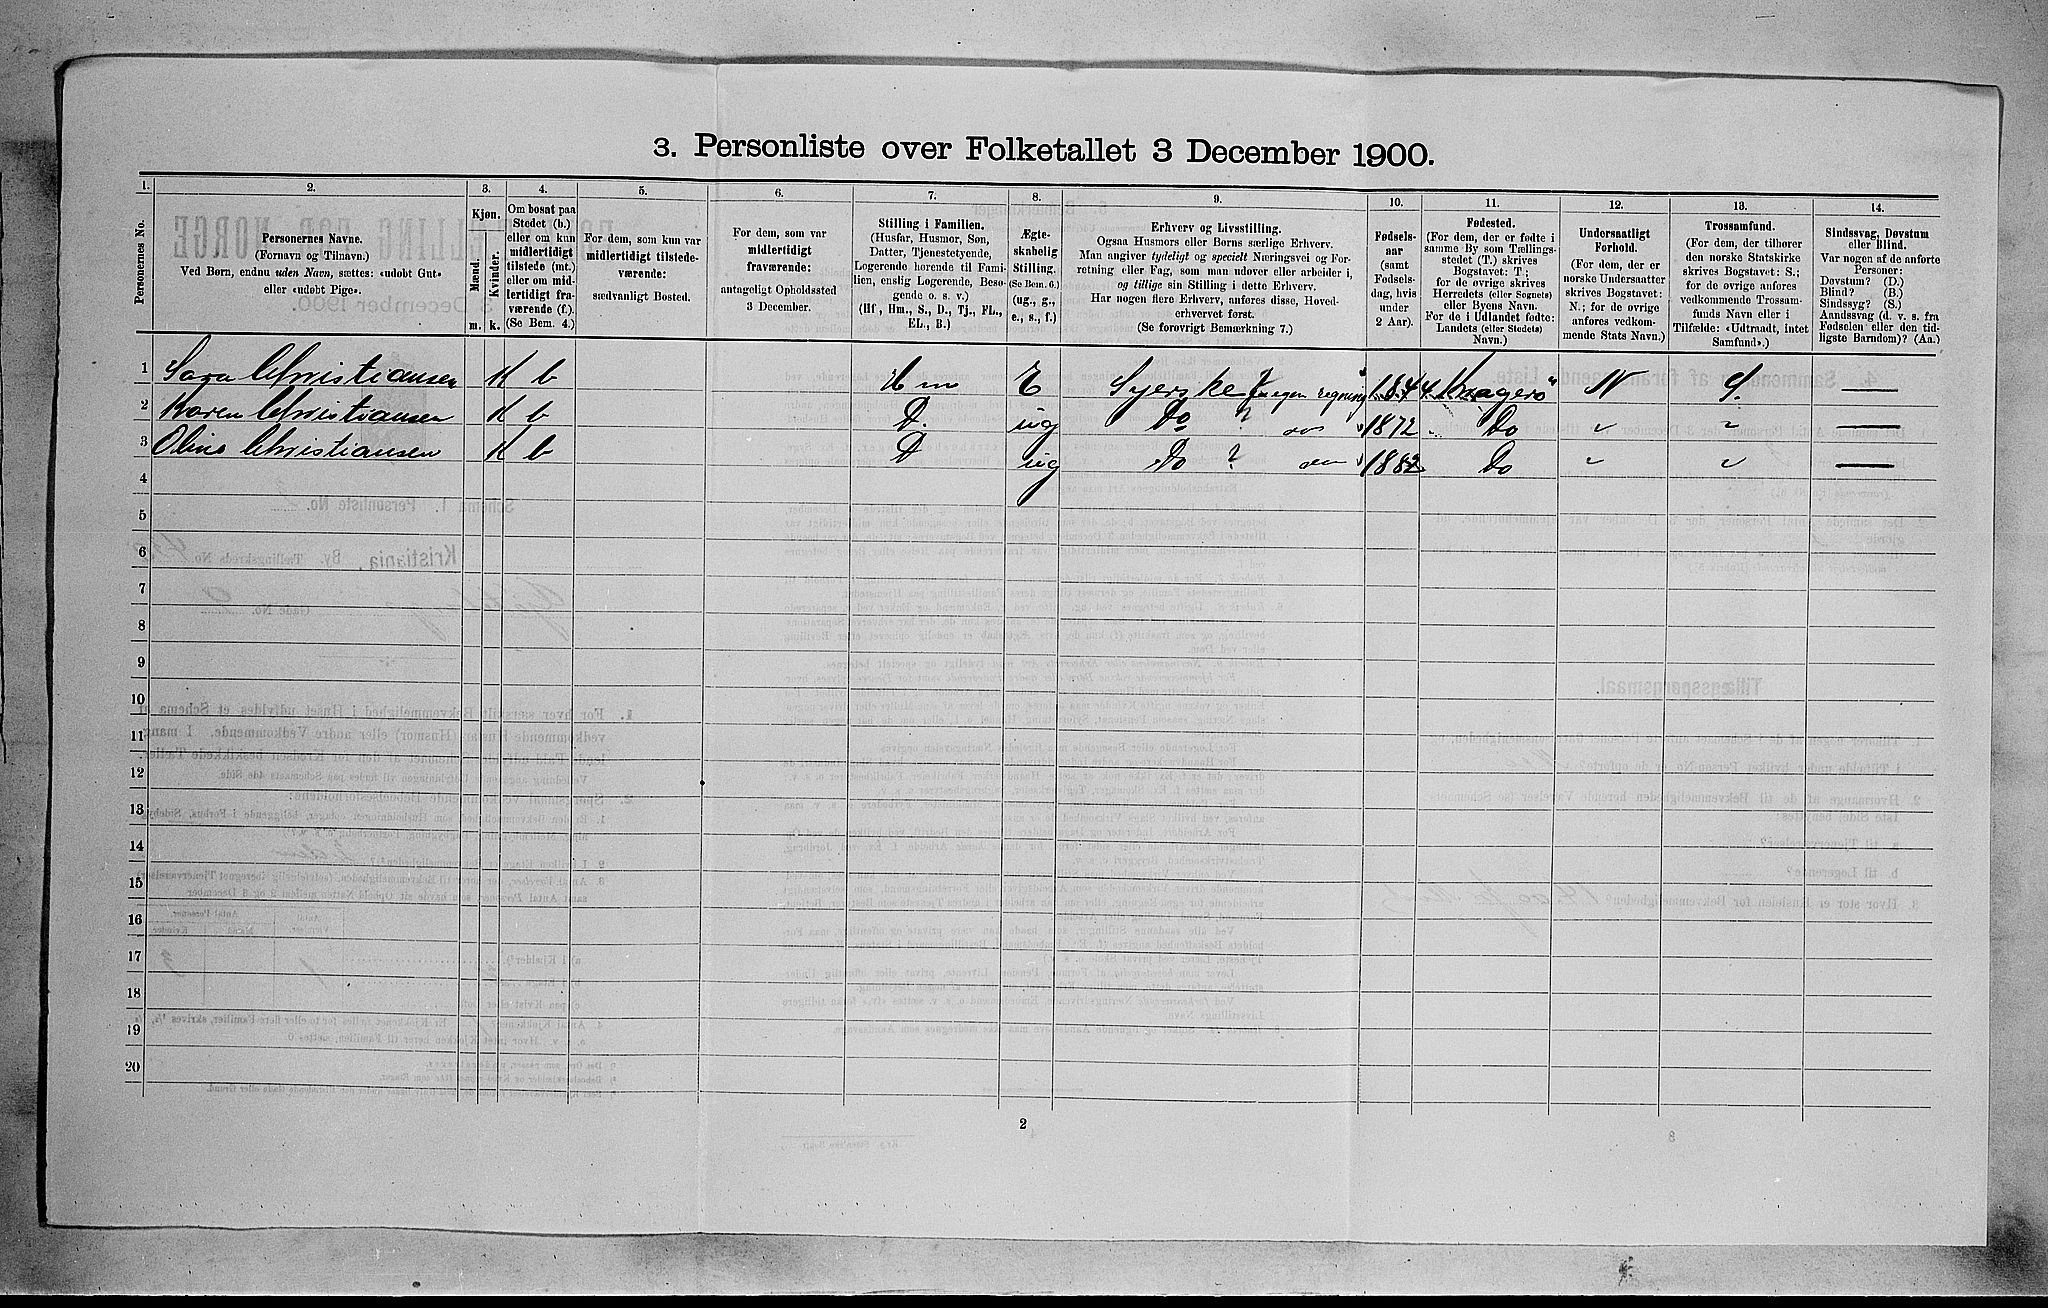 3. Personliste over Folketallet 3 December 1900.
1. 2. 3. 4. 5. 6. 7. 8. 9. 10. 11. 12. 13. 14.
Personernes No.
Personernes Navne.
(Fornavn og Tilnavn.)
Ved Børn, endnu uden Navn, sættes: «udøbt Gut»
eller «udøbt Pige».
Kjøn.
Mænd.
Kvinder.
m. k.
Om bosat paa
Stedet (b.)
eller om kun
midlertidigt
tilstede (mt.)
eller om mid-
lertidigt fra-
værende (f.).
(Se Bem. 4.)
For dem, som kun var
midlertidigt tilstede-
værende:
sædvanligt Bosted.
For dem, som var
midlertidigt
fraværende:
antageligt Opholdssted
3 December.
Stilling i Familien.
(Husfar, Husmor, Søn,
Datter, Tjenestetyende,
Logerende hørende til Fami-
lien, enslig Logerende, Besø-
gende o. s. v.)
(Hf, Hm., S., D., Tj., FL.,
EL., B.)
Ægte-
skabelig
Stilling.
(Se Bem. 6.)
(ug., g.,
e., s., f.)
Erhverv og Livsstilling.
Ogsaa Husmors eller Børns særlige Erhverv.
Man angiver tydeligt og specielt Næringsvei og For-
retning eller Fag, som man udøver eller arbeider i,
og tillige sin Stilling i dette Erhverv.
Har nogen flere Erhverv, anføres disse, Hoved-
erhvervet først.
(Se forøvrigt Bemærkning 7.)
Fødsels-
aar
(samt
Fødsels-
dag, hvis
under
2 Aar).
Fødested.
(For dem, der er fødte i
samme By som Tællings-
stedet (T.) skrives
Bogstavet: T.;
for de øvrige skrives
Herredets (eller Sognets)
eller Byens Navn.
For de i Udlandet fødte:
Landets (eller Stedets)
Navn.)
Undersaatligt
Forhold.
(For dem, der er
norske Undersaatter
skrives Bogstavet:
N.; for de øvrige
anføres vedkom-
mende Stats Navn.)
Trossamfund.
(For dem, der tilhører
den norske Statskirke
skrives Bogstavet: S.;
for de øvrige anføres
vedkommende Trossam-
funds Navn eller i
Tilfælde: «Udtraadt, intet
Samfund».)
Sindssvag, Døvstum
eller Blind.
Var nogen af de anførte
Personer:
Døvstum? (D.)
Blind? (B.)
Sindssyg? (S.)
Aandssvag (d. v. s. fra
Fødselen eller den tid-
ligste Barndom)? (Aa.)
1 Sara Christiansen K b Hm E Syerske f. egen regning 1844 Kragerø N S. —
2 Karen Christiansen K b D. ug Do ? 1872 Do " " —
3 Olina Christiansen K b D ug Do ? 1882 Do " " —
4
5
6
7
8
9
10
11
12
13
14
15
16
17
18
19
20
2